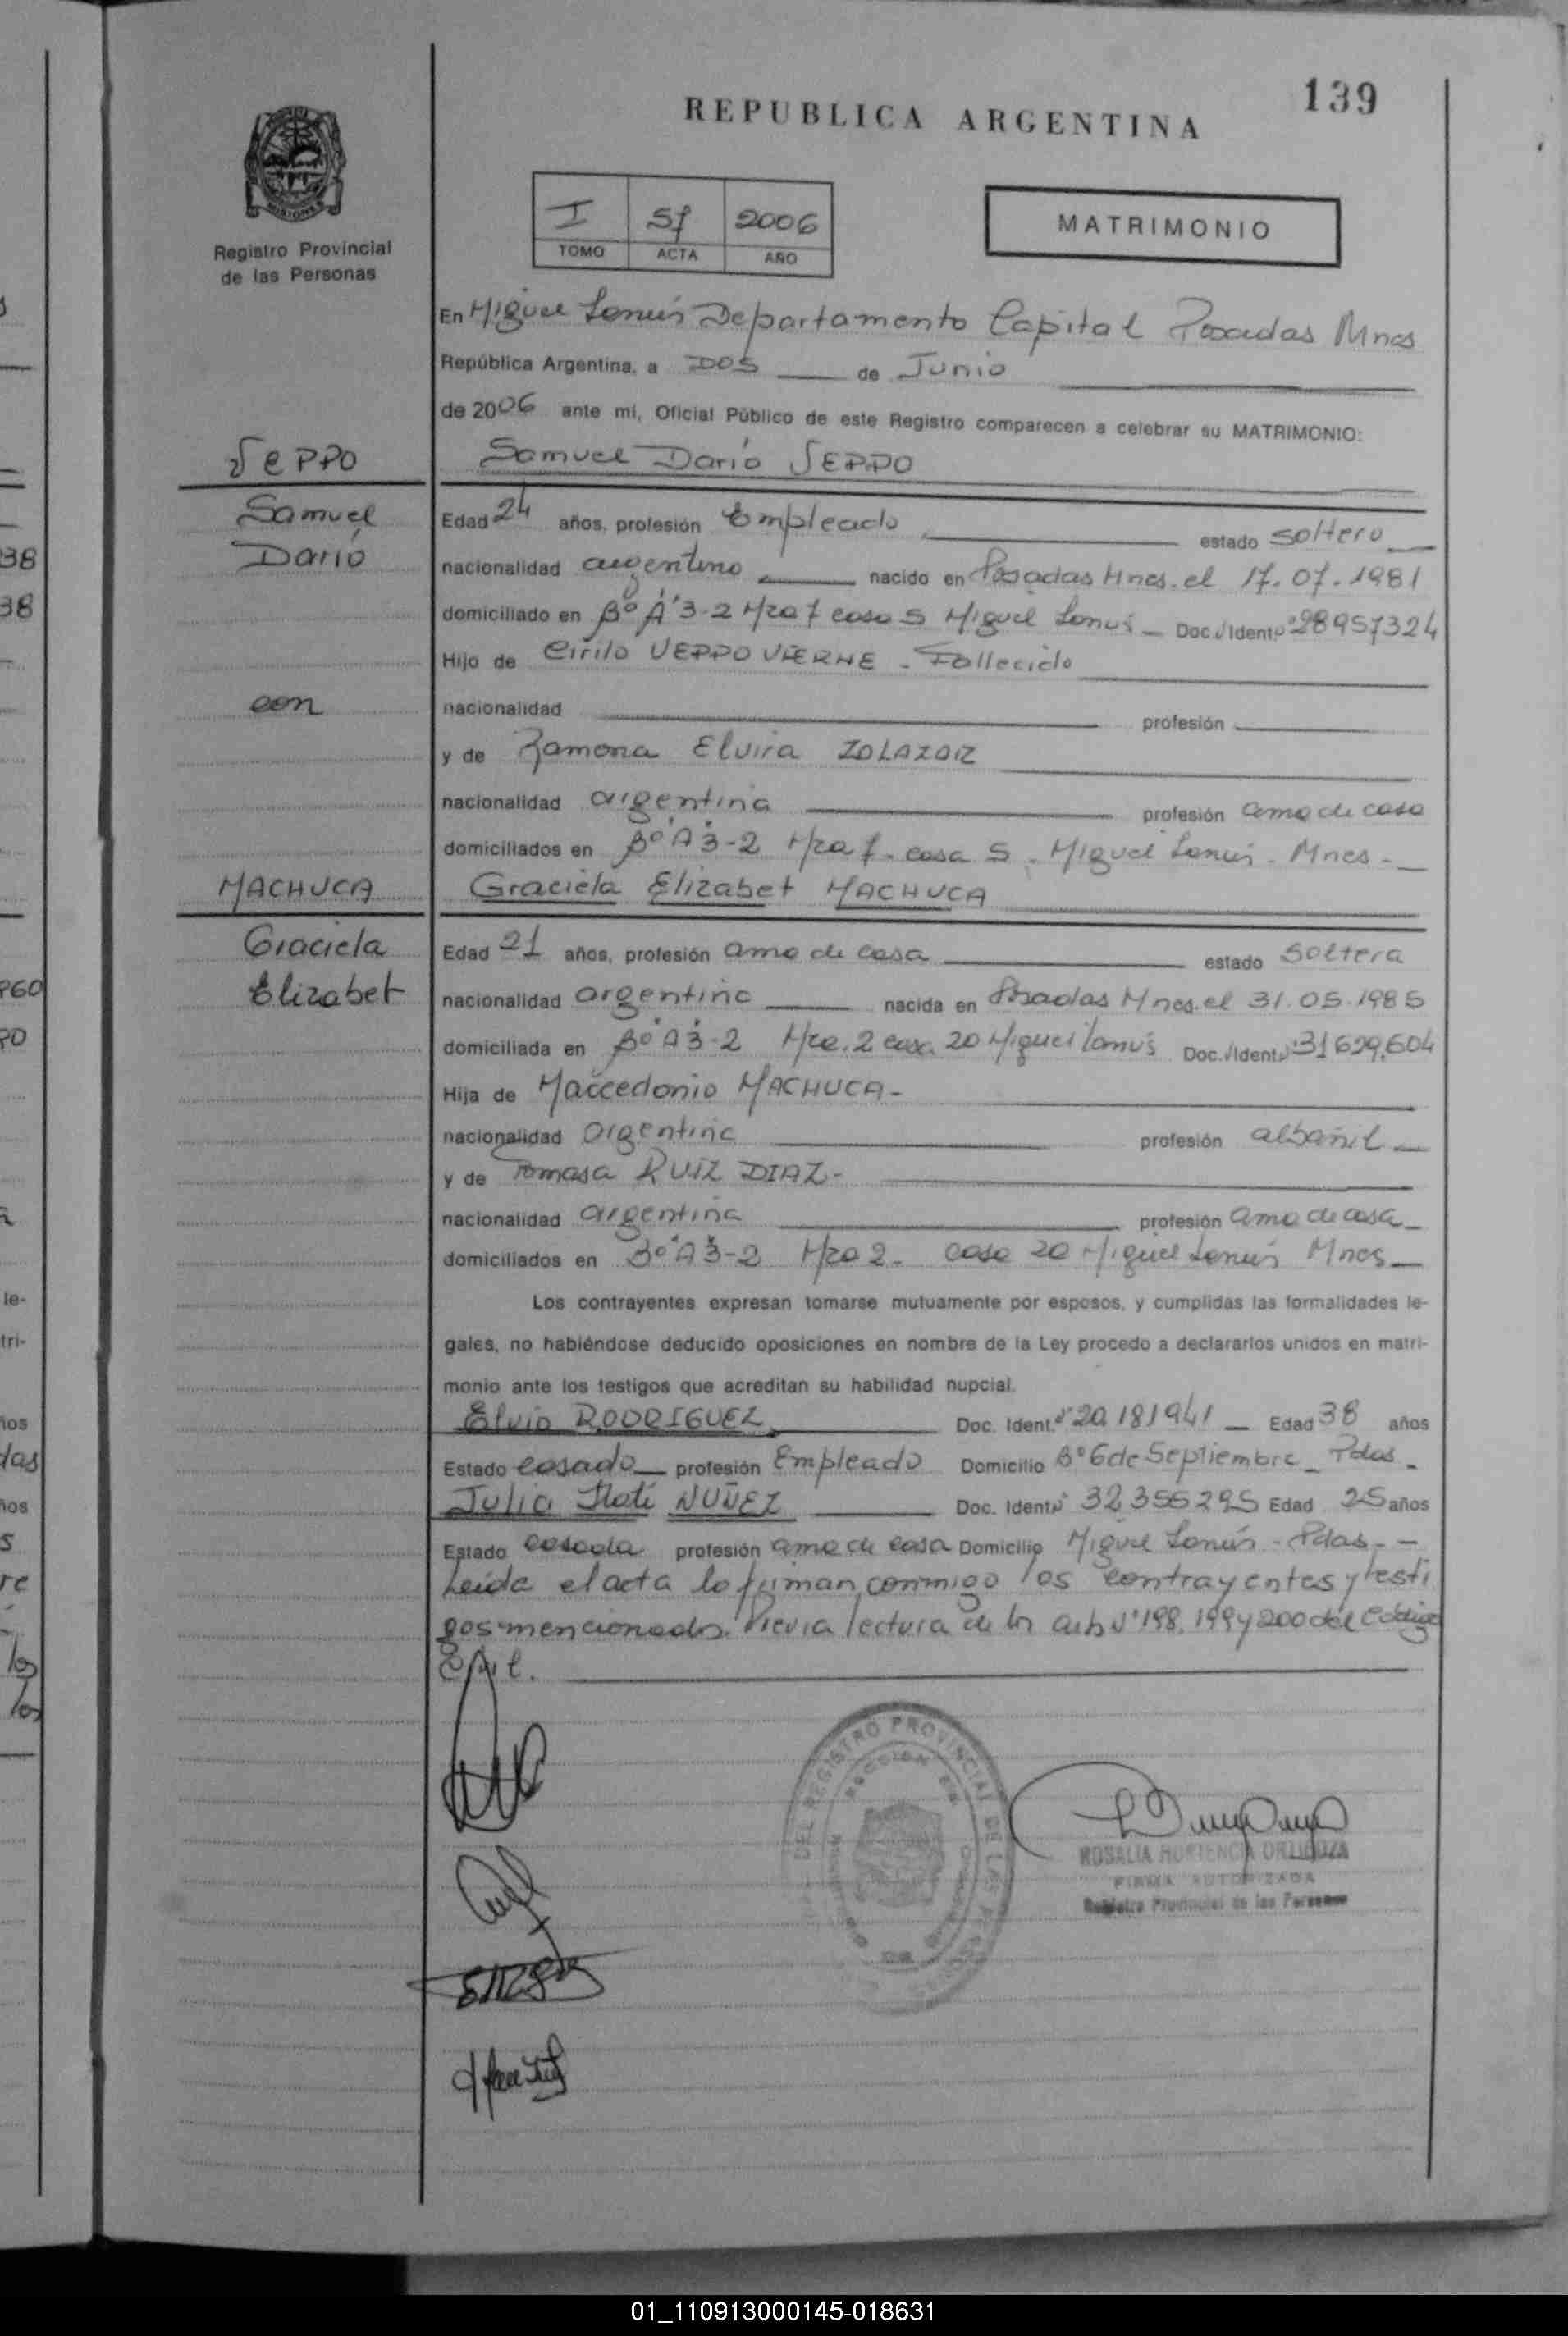 139
REPUBLICA ARGENTINA
MISIONES
Registro Provincial
de las Personas
I 57 2006
TOMO ACTA AÑO
MATRIMONIO
En Miguel Lanús Departamento Capital Posadas Mnes
República Argentina, a DOS de Junio
de 2006 ante mi, Oficial Público de este Registro comparecen a celebrar su MATRIMONIO:
SEPPO
Samuel Darío SEPPO
Samuel
Edad 24 años, profesión Empleado estado soltero
Darío
nacionalidad argentino nacido en Posadas Mnes. el 17.07.1981
domiciliado en Bº A 3-2 Mza 7 casa 5 Miguel Lanús Doc. Ident. Nº 28957324
Hijo de Cirilo - Fallecido
con
nacionalidad profesión
y de Ramona Elvira
nacionalidad argentina profesión ama de casa
domiciliados en Bº A 3-2 Mza 7. casa 5. Miguel Lanús. Mnes.
MACHUCA
Graciela Elizabet MACHUCA
Graciela
Edad 21 años, profesión ama de casa estado soltera
Elizabet
nacionalidad argentina nacida en Posadas Mnes. el 31.05.1985
domiciliada en Bº A 3-2 Mza. 2 casa 20 Miguel Lanús Doc. Ident. Nº 31629.604
Hija de Maccedonio MACHUCA-
nacionalidad argentina profesión albañil
y de Tomasa RUIZ DIAZ-
nacionalidad argentina profesión ama de casa
domiciliados en Bº A 3-2 Mza 2. casa 20 Miguel Lanús Mnes
Los contrayentes expresan tomarse mutuamente por esposos, y cumplidas las formalidades le-
gales, no habiéndose deducido oposiciones en nombre de la Ley procedo a declararlos unidos en matri-
monio ante los testigos que acreditan su habilidad nupcial.
Elvio RODRIGUEZ Doc. Ident. Nº 20.181941 Edad 38 años
Estado casado profesión Empleado Domicilio Bº 6 de Septiembre Pdas.
Julia Itatí NUÑEZ Doc. Ident. Nº 32.356295 Edad 25 años
Estado casada profesión ama de casa Domicilio Miguel Lanús - Pdas.-
Leída el acta la firman conmigo los contrayentes y testi
gos mencionados. Previa lectura de los arts Nº 198, 199 y 200 del Código
Civil.
DEL REGISTRO PROVINCIAL DE LAS
ROSALIA HORTENCIA ORTIGOZA
FIRMA AUTORIZADA
Registro Provincial de las Personas
01_110913000145-018631